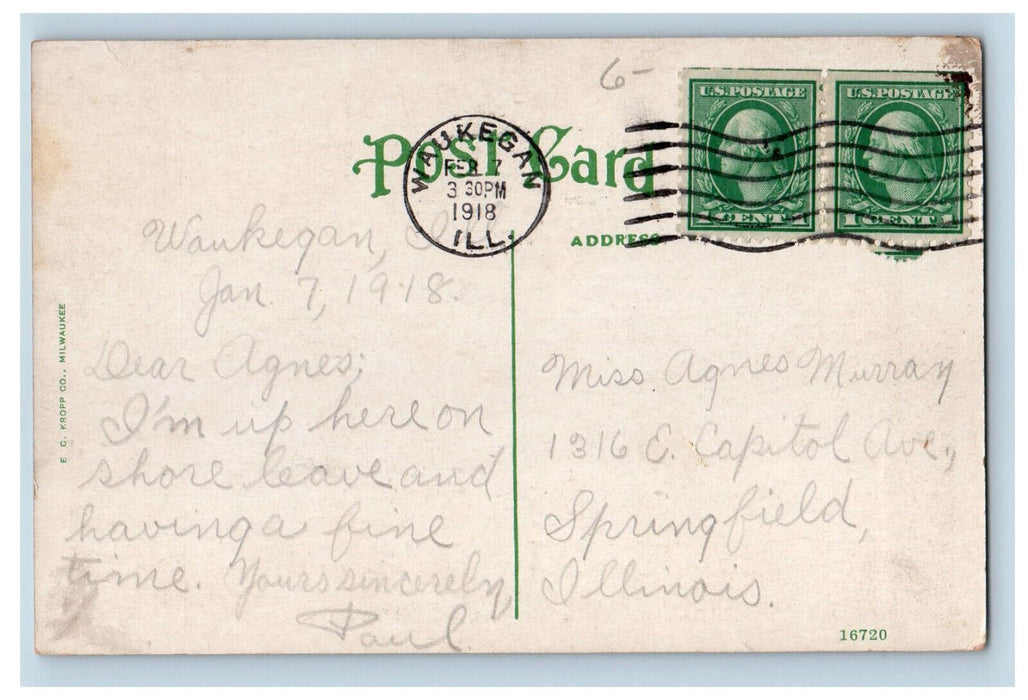 6-
U.S. POSTAGE
U.S. POSTAGE
1 CENT 1
1 CENT 1
Post Card
WAUKEGAN
FEB 7
3 30PM
1918
ILL.
ADDRESS
Waukegan, Ill.
Jan. 7, 1918.
Dear Agnes:
I'm up here on
shore leave and
having a fine
time. Yours sincerely,
Paul.
Miss Agnes Murray
1316 E. Capitol Ave.,
Springfield,
Illinois.
E. C. KROPP CO., MILWAUKEE
16720